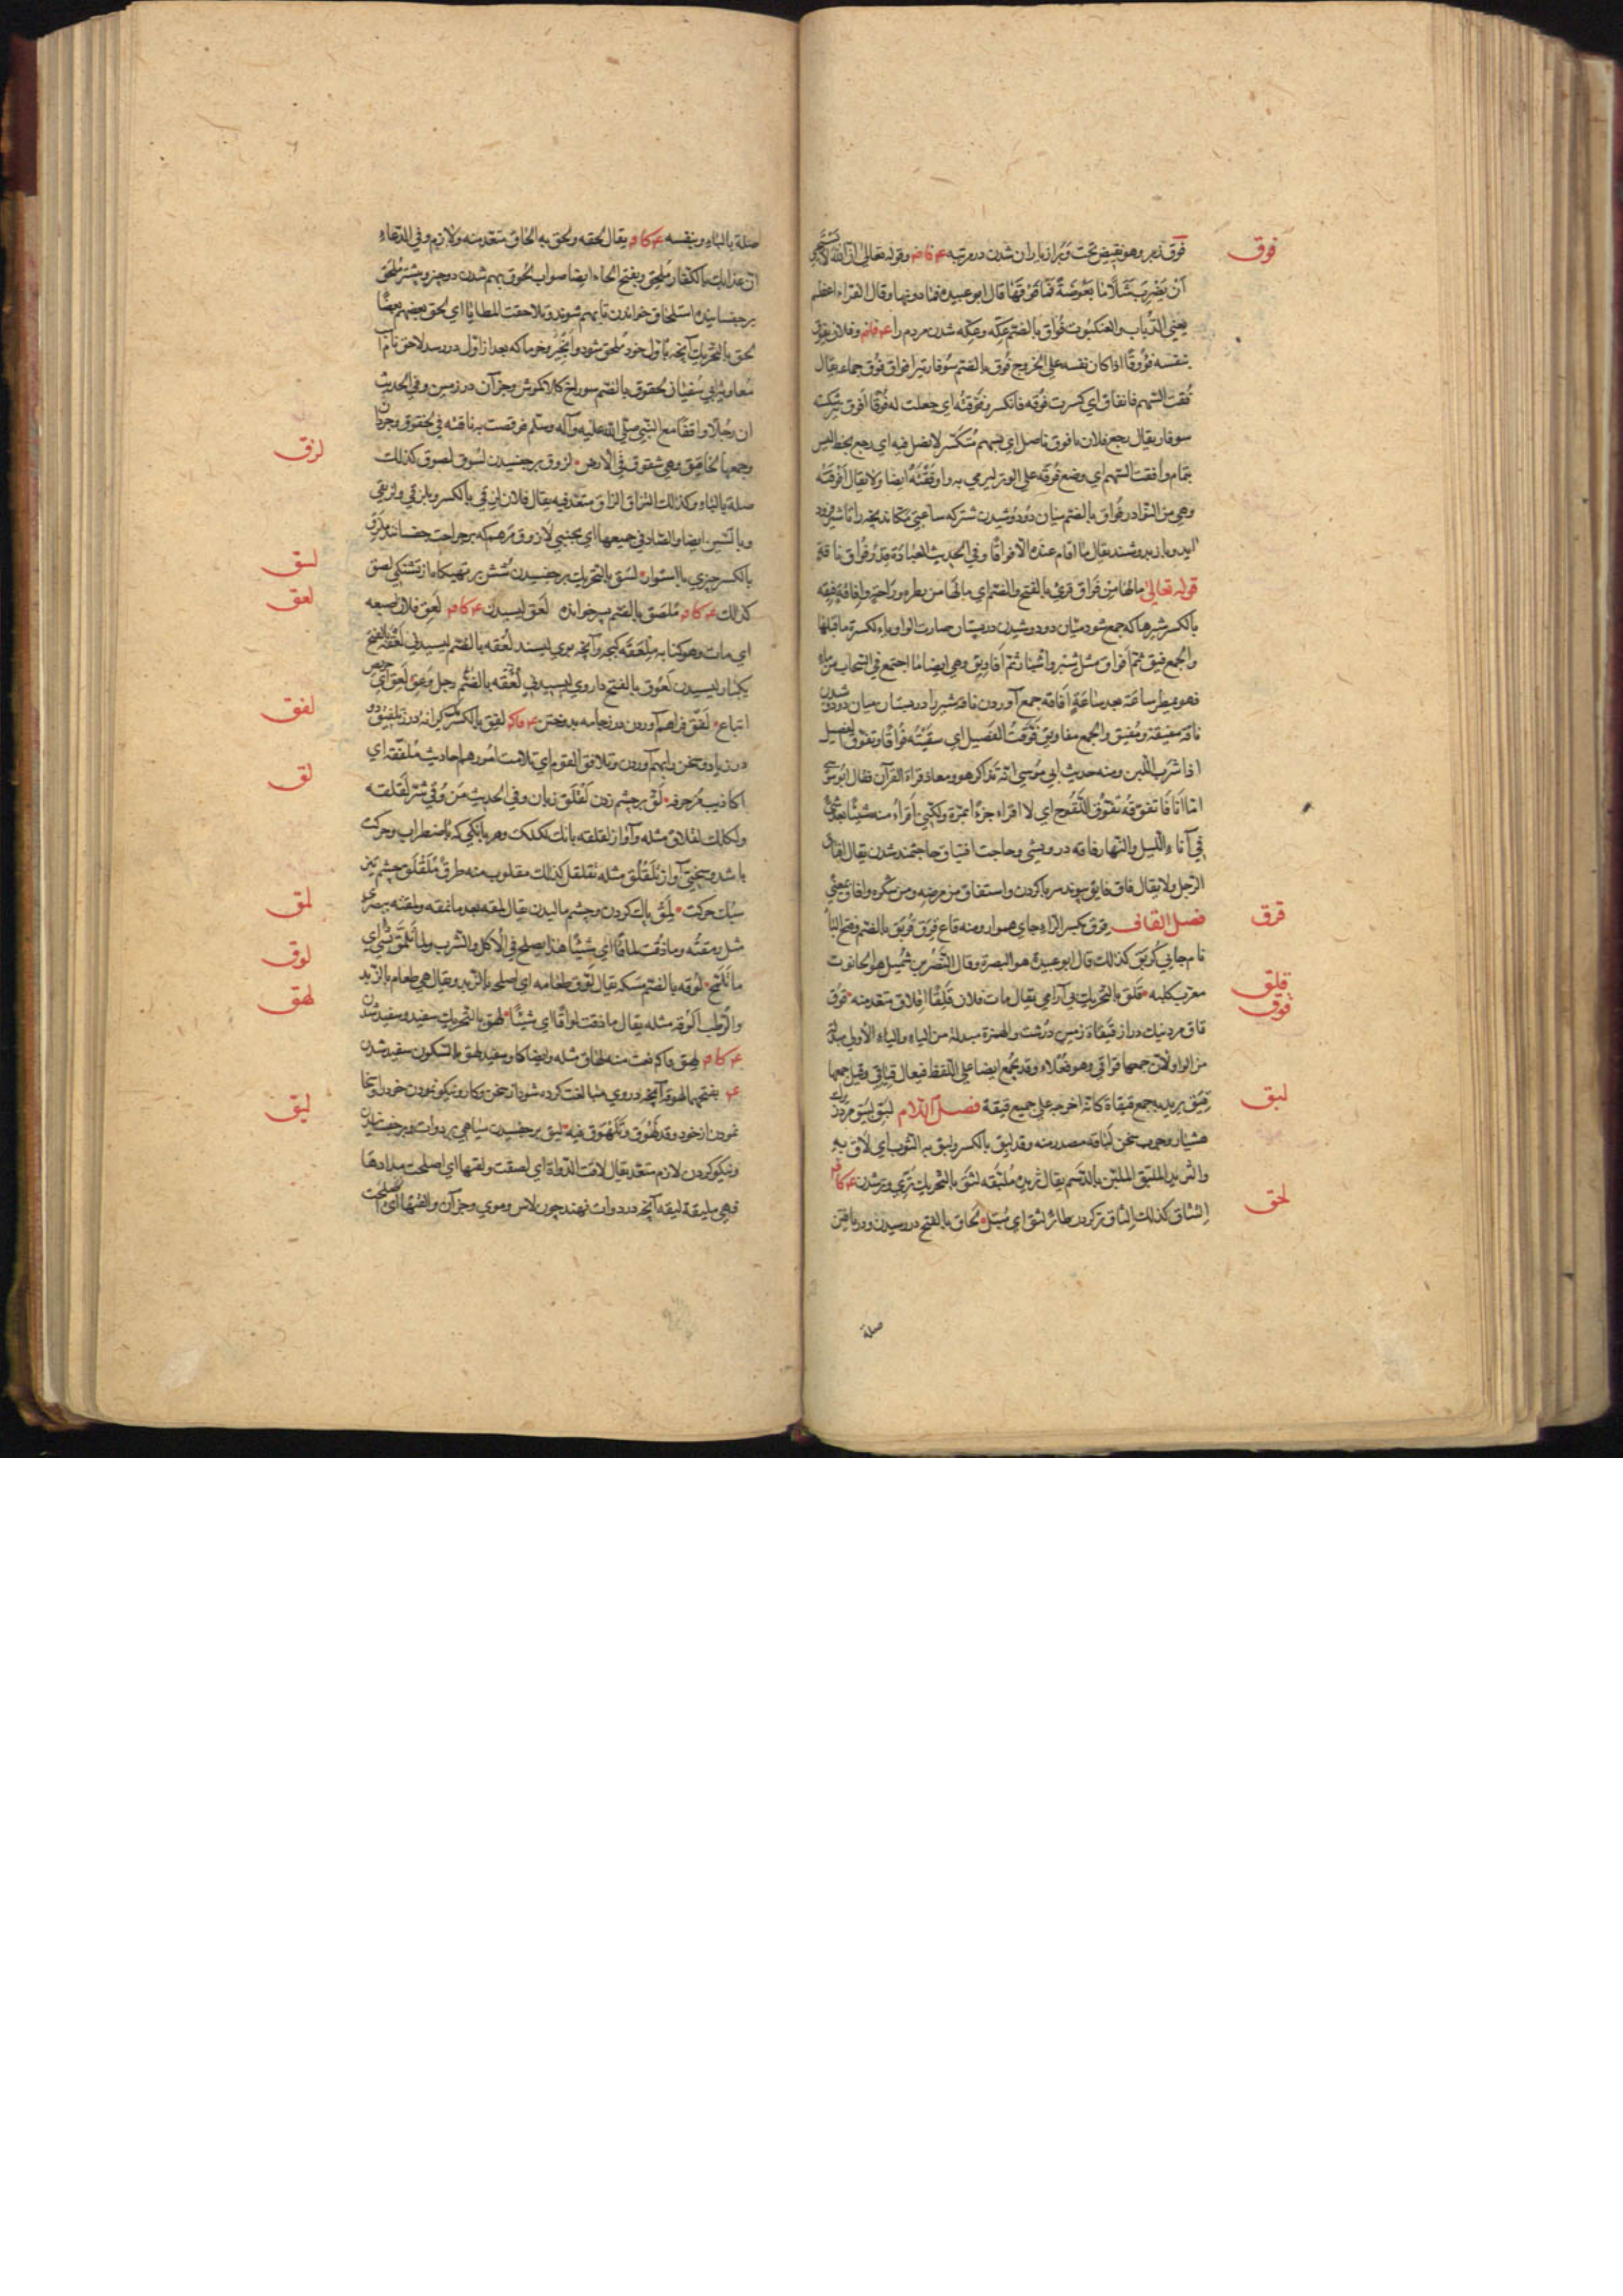 فوق
فَوق زبر وهو نقيض تحت وَبُرَازيا ران شدن در مرتبه وقوله تعالى ان الله لا يستحيي
أن يَضْرِبَ مَثَلًا مَا بَعُوضَةً فَمَا فَوْقَهَا قال ابو عبيدة فما دونها وقال الفراء اعظم
يعني الذباب والعنكبوت فُواق بالضم عكّه وعكّه شدن مردم را وفلان يفوق
بنفسه فُؤُوقًا اذا كان نفسه على الخروج فُوق بالضم سوفار تير افواق فُوَق جماعه يقال
فُقت السهم فانفاق اي كسرت فُوقه فانكسر وفَوَّقتُه اي جعلت له فُوقًا افوق تير شكسته
سوفار يقال رجع فلان بافوق ناصل اي بسهم مُنكسر لا نصل فيه اي رجع بحظ ليس
بتمام وأفقت السهم اي وضع فُوقَه على الوتر ليرمي به واوفَقْتُهُ ايضا ولا يقال أَفْوَقْتُه
وهي من النوادر فُواق بالضم ميان دو دوشيدن شتر كه ساعتي بچه را تا شير فرود
آيد وباز بدوشند يقال ما اقام عنده الا فواقًا وفي الحديث العيادة قدر فُواق ناقة
قوله تعالى مالها من فواق قرئ بالفتح والضم اي مالها من نظرة وراحة وافاقة فيقه
بالكسر شير ها كه جمع شود ميان دو دوشيدن در پستان صارت الواو ياء لكسرة ما قبلها
والجمع فيق ثم افواق مثل شبر واشبار ثم أفاويق وهي ايضا ما اجتمع في السحاب من ماء
فهو يمطر ساعة بعد ساعة افاقه جمع آوردن ناقه شير را در پستان ميان دو دوشيدن
ناقة مفيقة ومُفيق والجمع مفاويق فَوَّقتُ الفصيل اي سقيتُه فُواقًا وتفوق الفصيل
اذا شرب اللبن ومنه حديث ابي موسى انه تذاكر هو ومعاذ قراءة القرآن فقال ابو موسى
امّا انا فأتفوقُه تفوُّق اللقوح اي لا اقراء جزءًا بمرّة ولكنّي أقراُ منه شيئًا بعد شيءٍ
في آناء الليل والنهار فاقه درويشي وحاجت افتياق حاجتمند شدن يقال افتاق
الرجل ولا يقال فاق فايق پيوند سر با گردن واستفاق من مرضه ومن سكره وافاق بمعنًى
قرق
فصل القاف قرق بكسر الراء جاي هموار ومنه قاع قَرِق قُربق بالضم وفتح الباء
نام جايي كُربق كذلك قال ابو عبيدة هو البصرة وقال النضر بن شُميل هو الحانوت
قلق
معرب كلبه قلق بالتحريك بي آرامي يقال بات فلان قَلِقًا اقلاق متعد منه قوق
قوق
قاق مرد نيك دراز قيقاة زمين درشت والهمزة مبدلة من الياء والياء الاولى مبدلة
من الواو لان جمعها قواقي وهو فعلاء وقد يجمع ايضا على اللفظ فيقال قياقي وقيل جمعها
لبق
فصل اللام لَبِق لَبيق مرد زيرك
هشيار وچرب سخن لَباقه مصدر منه وقد لبق بالكسر ولبق به الثوب اي لاق به
والثريد الملبّق الملين بالدسم يقال ثريدة مُلبّقه لثق بالتحريك تري وتر شدن
لحق
الثاق كذلك الثاق تر كردن طائر لثق اي مبتل لحاق بالفتح در رسيدن ودر يافتن
صلة
صلة بالباء وبنفسه يقال لحقه ولحق به الحاق متعد منه ولازم وفي الدعاء
ان عذابك بالكفار مُلحِق وبفتح الحاء ايضا صواب لحوق بهم شدن دو چيز وپشتر مُلحق
بر چفسانيده استلحاق خواندن تا بهم شوند وتلاحقت المطايا اي لحق بعضهم بعضًا
لحق بالتحريك آنچه باول خود مُلحق شود وانجير وخرما كه بعد از اول در رسد لاحق نام اسب
معاوية بن ابي سفيان لحقوق بالضم سوراخ كلاكموش وجز آن در زمين وفي الحديث
ان رجلا واقفًا مع النبي صلى الله عليه وآله وسلم فوقصت به ناقته في لخقوق جرذان
لزق
وجمعها لخاقيق وهي شقوق في الارض لزوق بر چفسيدن لسوق لصوق كذلك
صلة بالباء وكذلك التزاق الزاق متعد فيه يقال فلان لزقي بالكسر وبلزقي ولزيقي
وبالسين ايضا والصاد في جميعها اي بجنبي لازوق مرهم كه بر جراحت چفسانند
لسق
بالكسر چيزي نا استوار لسق بالتحريك بر چفسيدن شُش بر تهيگاه از تشنگي لصق
لعق
كذلك مُلصق بالضم پسر خوانده لعق ليسيدن لعق فلان اصبعه
اي مات وهو كناية مِلعَقه كفچه وآنچه بوي ليسند لُعقه بالضم ليسيدني لعقة بالفتح
يكبار ليسيدن لَعُوق بالفتح داروي ليسيدني لُعقه بالضم رجل وَعِق لَعِق اي حريص
لفق
اتباع لَفق فراهم آوردن درز جامه بدوختن لِفق بالكسر كرانه درز تلفيق دو
درز باد وسخن را بهم آوردن وتلافق القوم اي تلامت امورهم احاديث مُلفّقه اي
لق
اكاذيب مُزخرفه لَق بر چشم زدن لَقلَق زبان وفي الحديث من وُقي شر لَقلَقه
ولكلك لقلاق مثله وآواز لقلقه بانك لكلك وهر بانگي كه با اضطراب وحركت
باشد وسختي آواز تلقلُق مثله تقلقل كذلك مقلوب منه طرف مُلَقلَق چشم تيز
لمق
سبك حركت لمق پاك كردن وچشم ماليدن يقال لمقه بعد ما نمقه ولمقته ببصري
لوق
مثل رمقته وما ذقت لماقًا اي شيئًا هذا يصلح في الاكل والشرب وما تلمّق بشيء اي
ما تلمج لُوقه بالضم مسكه يقال لوّق طعامه اي اصلحه بالزبد ويقال هي طعام بالزبد
لهق
والرطب الوقه مثله يقال ما ذقت لواقًا اي شيئًا لهق بالتحريك سفيد وسفيد شدن
لهق نعت منه لهاق مثله وايضا كاو سفيد لهق بالسكون سفيد شدن
بفتحهما لهوقه آنچه در وي مبالغت كرده شود از سخن وكار ونيكو نمودن خود را وسخا
ليق
نمودن از خود وقد لهوق وتلهوق فيه ليق بر چفسيدن سياهي بر دوات وبر چفسانيدن
ونيكو كردن لازم متعد يقال لاقت الدواة اي لصقت ولقتها اي اصلحت مدادها
فهي مليقة ليقه آنچه در دوات نهند چون لاس وموي وجز آن والقتها اي اصلحت